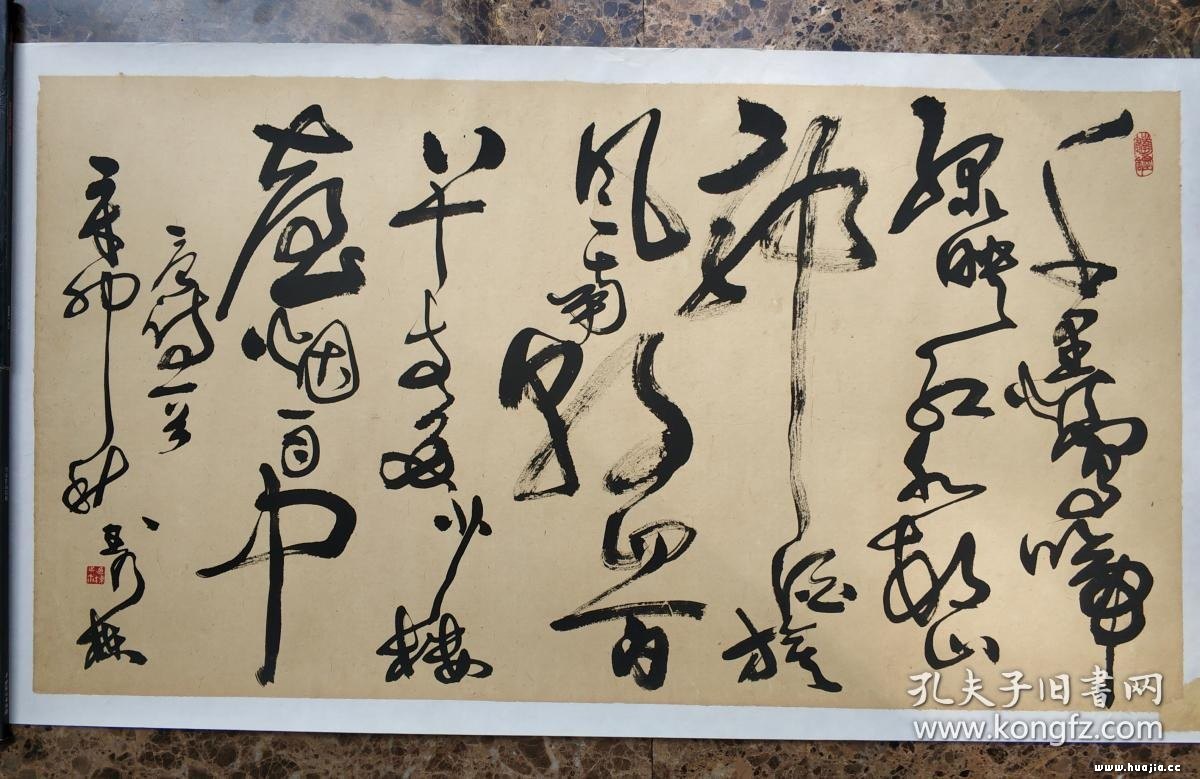 千里鶯啼
綠映紅水村山
郭酒旗
風南朝四百
八十寺多少樓
臺烟雨中
唐詩一首
辛卯秋
孔夫子旧书网
www.kongfz.com
www.huajia.cc